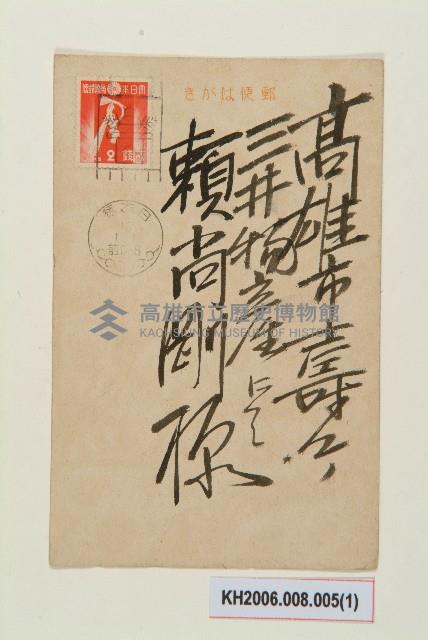 郵便はがき
高雄市壽町
三井物産にて
賴尚剛様
2
高雄市立歷史博物館
KAOHSIUNG MUSEUM OF HISTORY
KH2006.008.005(1)